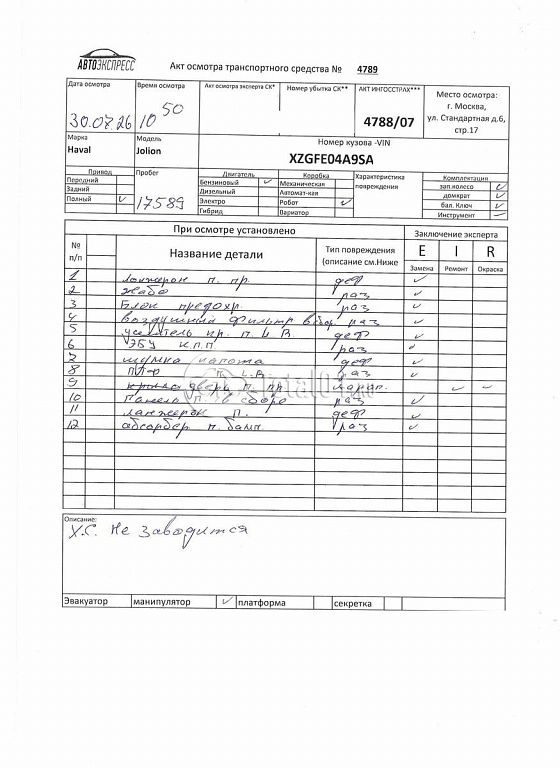 АВТОЭКСПРЕСС
Акт осмотра транспортного средства № 4789
Дата осмотра
30.07.26
Время осмотра
10 50
Акт осмотра эксперта СК*
Номер убытка СК**
АКТ ИНГОССТРАХ***
4788/07
Место осмотра:
г. Москва,
ул. Стандартная д.6,
стр.17
Марка
Haval
Модель
Jolion
Номер кузова -VIN
XZGFE04A9SA
Привод
Передний
Задний
Полный
Пробег
17589
Двигатель
Бензиновый
Дизельный
Электро
Гибрид
Коробка
Механическая
Автомат-кая
Робот
Вариатор
Характеристика
повреждения
Комплектация
зап.колесо
домкрат
бал. Ключ
Инструмент
При осмотре установлено
Заключение эксперта
№
п/п
Название детали
Тип повреждения
(описание см.Ниже
E I R
Замена Ремонт Окраска
1 лонжерон п. пр. деф
2 жабо раз
3 Блок предохр. раз
4 воздушный фильтр в сбор. раз
5 усилитель кр. п. L R деф
6 ЭБУ К.П.П раз
7 шумка капота деф
8 ПТФ L.R раз
9 дверь п. пр. царап.
10 Панель п. в сборе раз
11 ланжерон п. деф
12 абсорбер п. бамп раз
Описание:
Х.С. Не заводится
Эвакуатор манипулятор платформа секретка